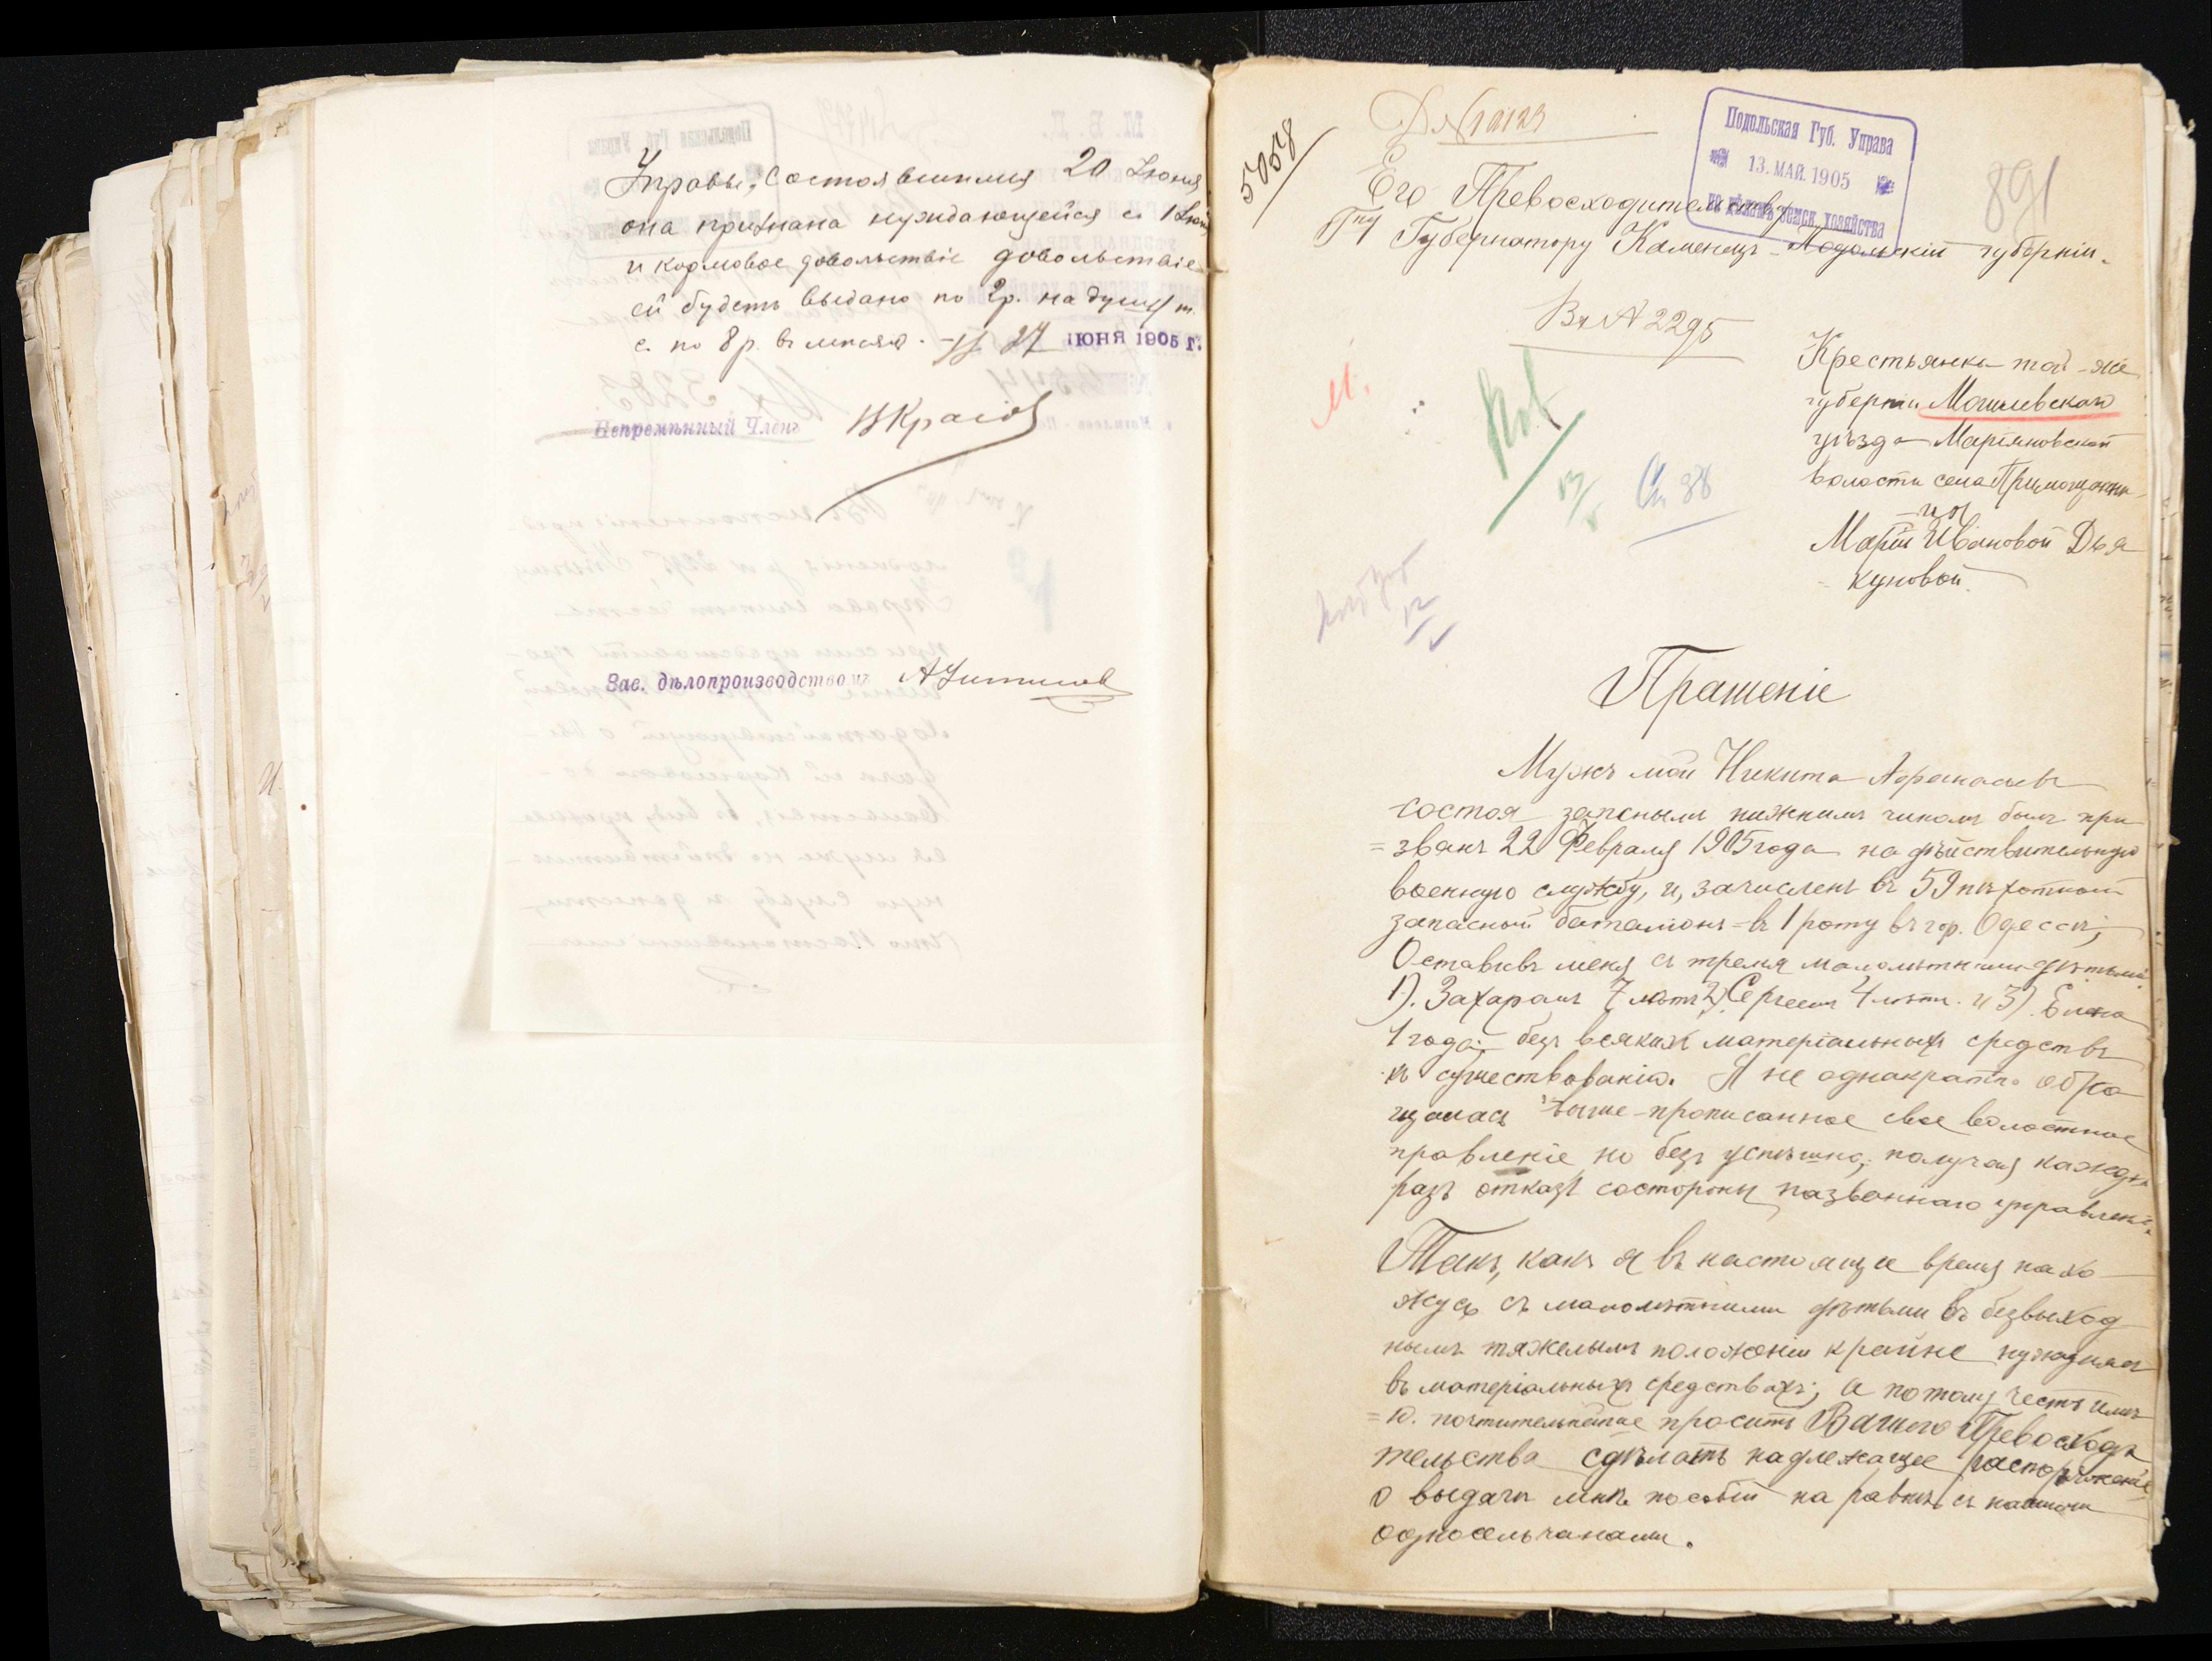 Управы, состоявшимся 20 Іюня
она признана нуждающейся съ 1 Іюня
и кормовое довольствіе довольствіе
ей будетъ выдано по 2р. на душу, т.
е. по 8р. въ мѣсяцъ. 27 ІЮНЯ 1905 г.
Непремѣнный Членъ
Зав. дѣлопроизводствомъ
5058
891
Подольская Губ. Управа
13. МАЙ. 1905
по дѣламъ земск. хозяйства
Его Превосходительству
Гну Губернатору Каменецъ-Подольскій губерніи.
Вх № 2295
Крестьянки той-же
губерніи Могилевскаго
уѣзда Маріяновской
волости села
Маріи Ивановой Дья
куновой.
М.
Прашеніе
Мужъ мой Никита Афанасьевъ
состоя запснымъ нижнимъ чиномъ былъ при
=званъ 22 Февраля 1905 года на дѣйствительную
военную службу, и, зачисленъ въ 59 пѣхотный
запасный баталіонъ въ 1 роту въ гор. Одессѣ;
Оставивъ меня съ тремя малолѣтними дѣтьми:
1). Захаромъ 7 лѣтъ 2) Сергеемъ 4 лѣтъ. и 3) Елена
1 года; безъ всякихъ матеріальныхъ средствъ
къ существованію. Я не однакратно обра
щалась выше-прописанное свое волостное
правленіе но безъ успѣшно; получая кажды
разъ отказъ состороны названнаго управлені.
Такъ, какъ я въ настоящее время нахо
жусь съ малолѣтними дѣтьми въ безвыход
нымъ тяжелымъ положеніи крайне нуждаяся
въ матеріальныхъ средствахъ; а потому честь имѣ
=ю. почтительнейше просить Вашего Превосходи
тельства сдѣлать надлежащее распоряженіе
о выдачи мнѣ пособій на равнѣ съ нашими
односельчанами.